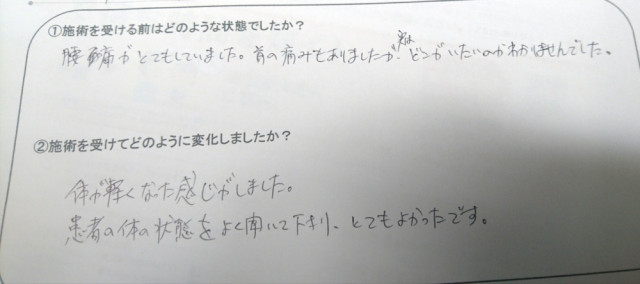 ①施術を受ける前はどのような状態でしたか？
腰痛がとてもしていました。首の痛みもありましたが、実はどこがいたいのかわかりませんでした。
②施術を受けてどのように変化しましたか？
体が軽くなった感じがしました。
患者の体の状態をよく聞いて下さり、とてもよかったです。